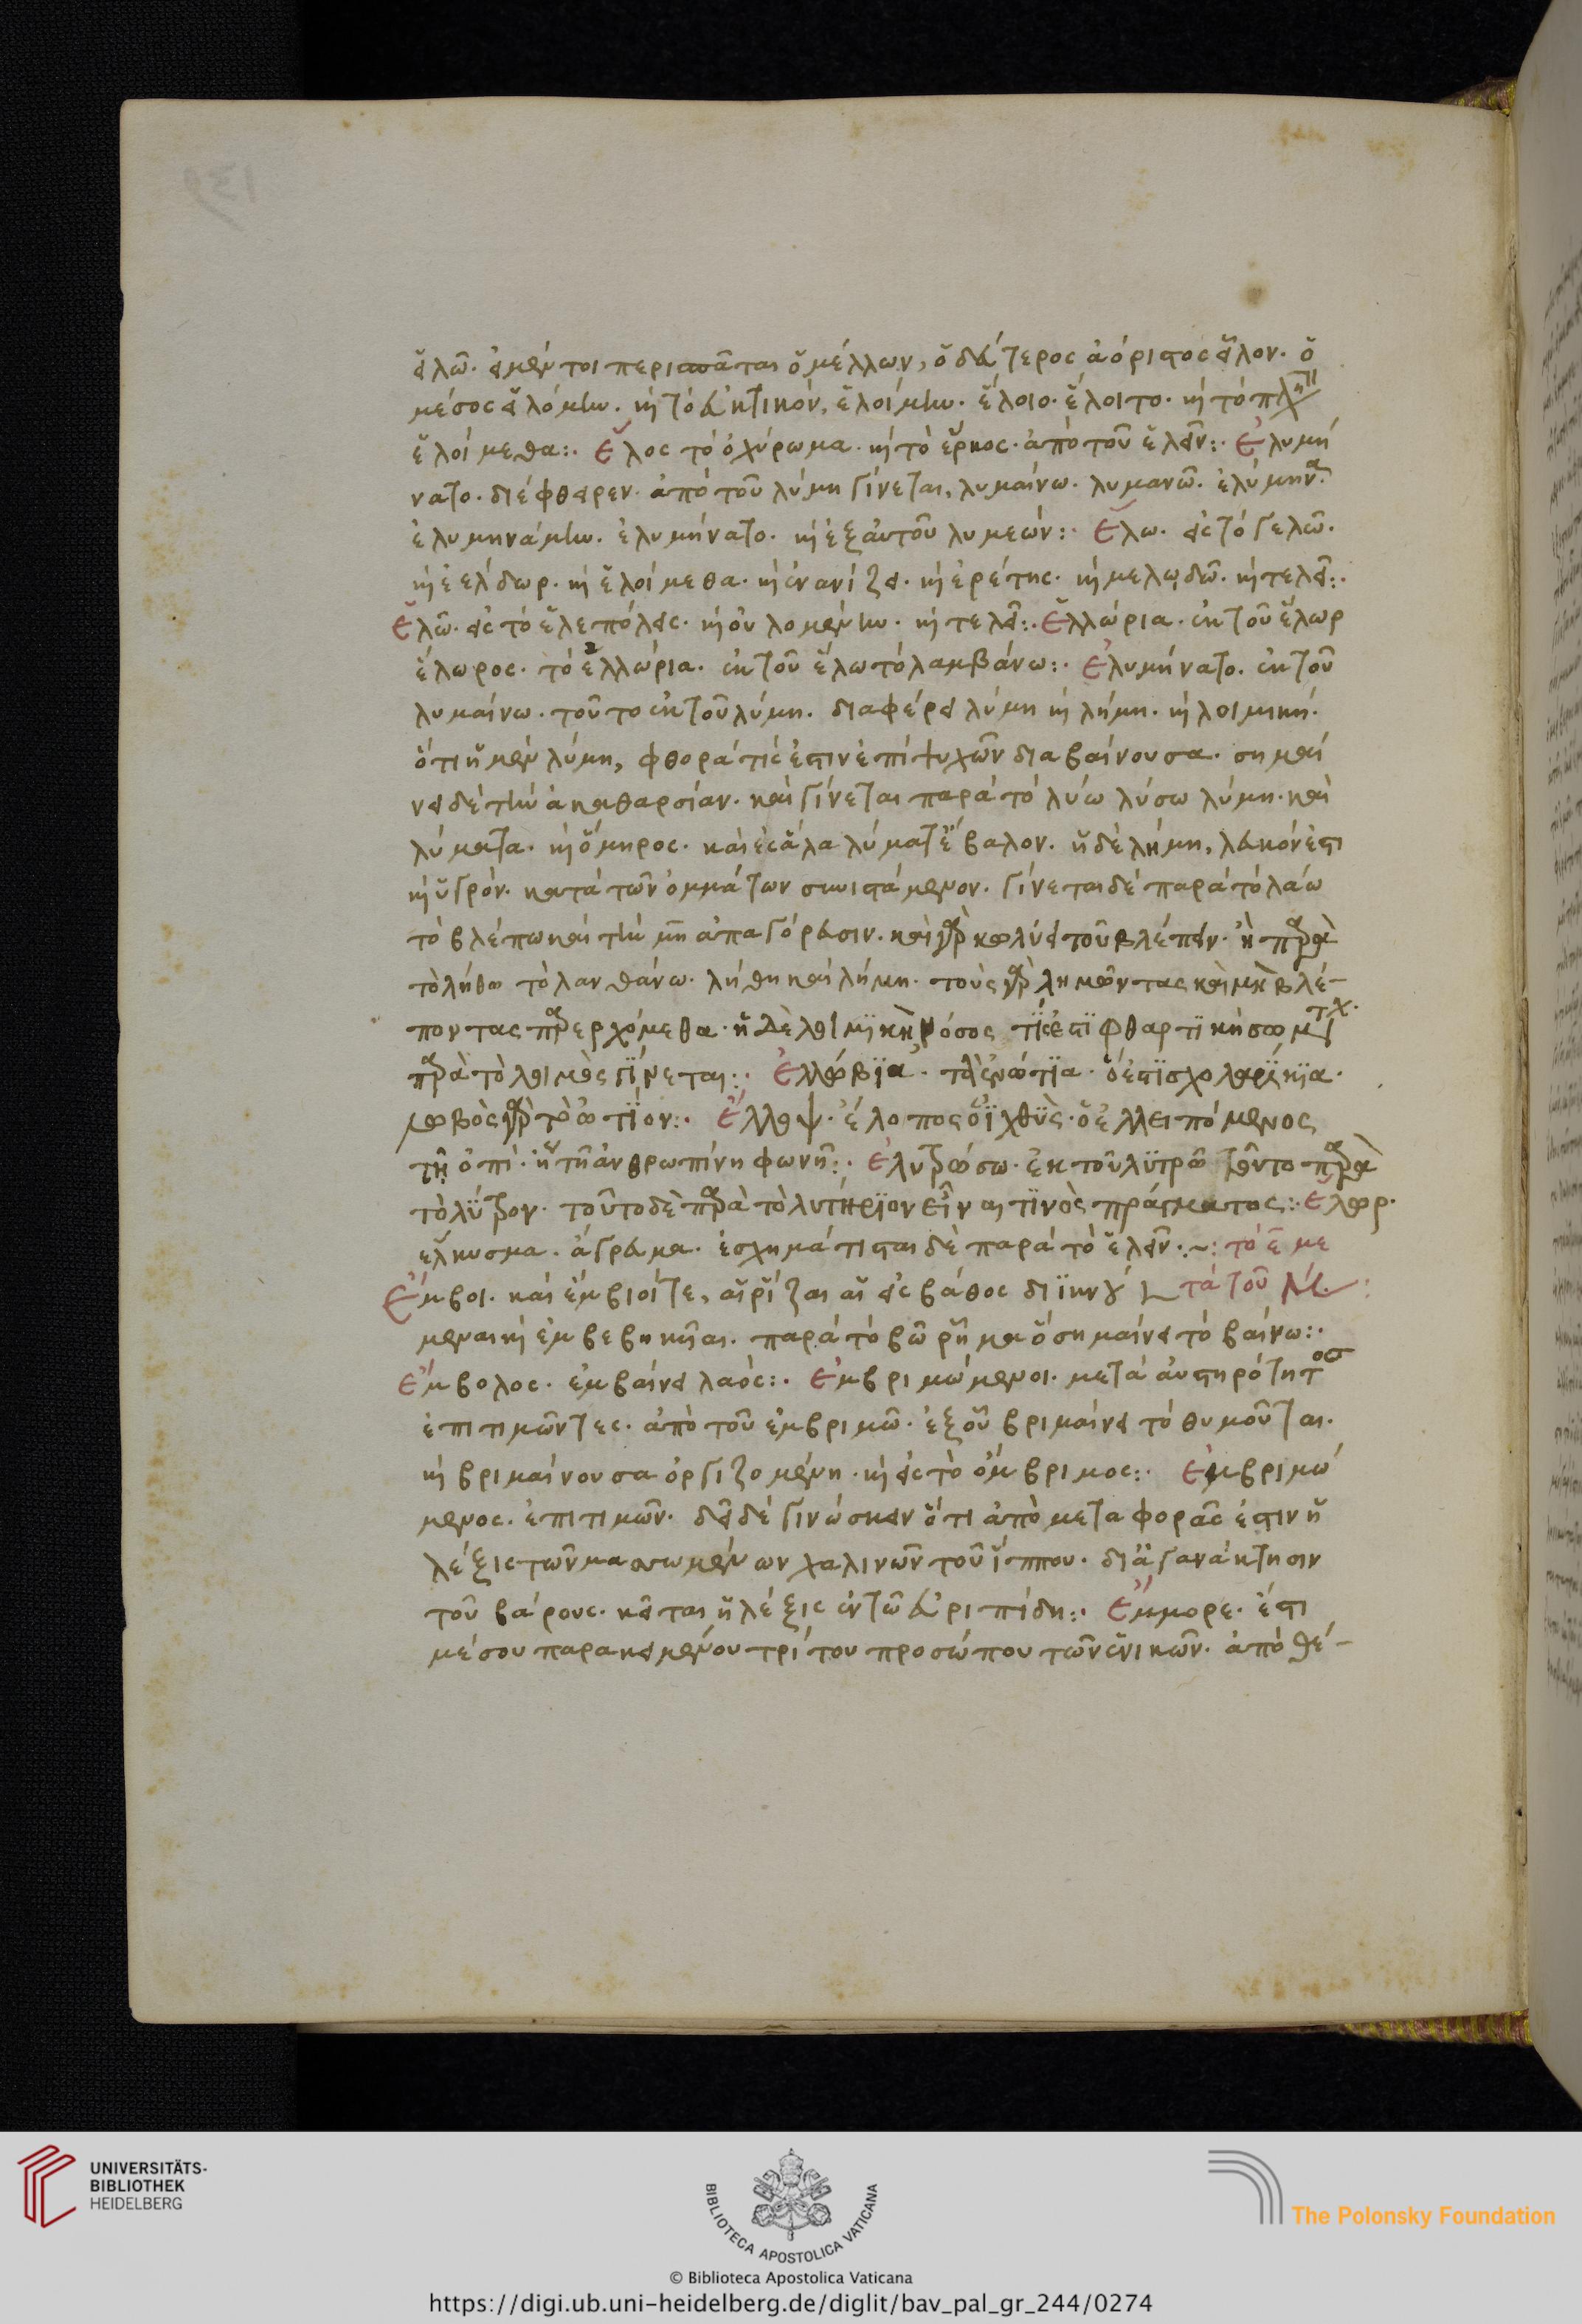 ἑλῶ. εἰ μέν τοι περισπᾶται ὁ μέλλων, ὁ δεύτερος ἀόριστος εἷλον. ὁ
μέσος εἱλόμην. καὶ τὸ εὐκτικόν, ἑλοίμην. ἕλοιο. ἕλοιτο. καὶ τὸ πλη
ἑλοίμεθα:. Ἕλος τὸ ὀχύρωμα. καὶ τὸ ἕρκος. ἀπὸ τοῦ ἑλεῖν:. Ἐλυμή
νατο. διέφθειρεν. ἀπὸ τοῦ λύμη γίνεται, λυμαίνω. λυμανῶ. ἐλύμηνα.
ἐλυμηνάμην. ἐλυμήνατο. καὶ ἐξ αὐτοῦ λυμεών:. Ἕλω. εἰς τὸ γελῶ.
καὶ ἐέλδωρ. καὶ ἑλοίμεθα. καὶ ἐναρίζει. καὶ ἐρέτης. καὶ μελῳδῶ. καὶ τελεῖ:.
Ἑλῶ. εἰς τὸ ἑλεπόλεις. καὶ οὐλομένην. καὶ τελεῖ:. Ἑλλώρια. ἐκ τοῦ ἕλωρ
ἕλωρος. τὸ ἑλλώρια. ἐκ τοῦ ἕλω τὸ λαμβάνω:. Ἐλυμήνατο. ἐκ τοῦ
λυμαίνω. τοῦτο ἐκ τοῦ λύμη. διαφέρει λύμη καὶ λήμη. καὶ λοιμική.
ὅτι ἡ μὲν λύμη, φθορά τίς ἐστιν ἐπὶ ψυχῶν διαβαίνουσα. σημαί
νει δὲ τὴν ἀκαθαρσίαν. καὶ γίνεται παρὰ τὸ λύω λύσω λύμη. καὶ
λύματα. καὶ ὅμηρος. καὶ εἰς ἅλα λύματ' ἔβαλον. ἡ δὲ λήμη, λευκόν ἐστι
καὶ ὑγρόν. κατὰ τῶν ὀμμάτων συνιστάμενον. γίνεται δὲ παρὰ τὸ λάω
τὸ βλέπω καὶ τὴν μη ἀπαγόρευσιν. καὶ γὰρ κωλύει τοῦ βλέπειν. ἢ παρὰ
τὸ λήθω τὸ λανθάνω. λήθη καὶ λήμη. τοὺς γὰρ λημῶντας καὶ μὴ βλέ-
ποντας παρερχόμεθα. ἡ δὲ λοιμϊκὴ νόσος τΐς ἐστϊ φθαρτϊκὴ σωματϊ
παρὰ τὸ λοιμὸς γΐνεται:. Ἐλλόβϊα. τὰ ἐνώτϊα. ὅ ἐστϊ σχολαρΐκϊα.
λοβὸς γὰρ τὸ ὠτΐον:. Ἔλλοψ. ἔλοπος ὁ ἰχθῢς. ὁ ἐλλειπόμενος
τῇ ὀπὶ. ἤτοι τῇ ἀνθρωπίνη φωνῇ:. Ἐλυτρώσω. ἐκ τοῦ λϋτρῶ τοῦτο παρὰ
τὸ λΰτρον. τοῦτο δὲ παρὰ τὸ λυτήρϊον εἶναι τϊνὸς πράγματος:. Ἕλωρ.
ἕλκυσμα. ἄγρευμα. ἐσχημάτισται δὲ παρὰ τὸ ἑλεῖν:~: τὸ ε με
Ἔμβοι. καὶ ἐμβιοῖτε, αἱ ῥίζαι αἱ εἰς βάθος διϊκνού τὰ τοῦ μ.
μεναι καὶ ἐμβεβηκῖαι. παρὰ τὸ βῶ ῥῆμα ὃ σημαίνει τὸ βαίνω:.
Ἔμβολος. ἐμβαίνει λαός:. Ἐμβριμώμενοι. μετὰ αὐστηρότητος
ἐπιτιμῶντες. ἀπὸ τοῦ ἐμβριμῶ. ἐξ οὗ βριμαίνει τὸ θυμοῦται.
καὶ βριμαίνουσα ὀργιζομένη. καὶ εἰς τὸ ὄμβριμος:. Ἐμβριμώ
μενος. ἐπιτιμῶν. δεῖ δὲ γινώσκειν ὅτι ἀπὸ μεταφορᾶς ἐστιν ἡ
λέξις τῶν μασωμένων χαλινῶν τοῦ ἵππου. δι' ἀγανάκτησιν
τοῦ βάρους. κεῖται ἡ λέξις ἐν τῶ εὐριπίδη:. Ἔμμορε. ἔστι
μέσου παρακειμένου τρίτου προσώπου τῶν ἑνικῶν. ἀπὸ θέ-
UNIVERSITÄTS-
BIBLIOTHEK
HEIDELBERG
BIBLIOTECA APOSTOLICA VATICANA
The Polonsky Foundation
© Biblioteca Apostolica Vaticana
https://digi.ub.uni-heidelberg.de/diglit/bav_pal_gr_244/0274